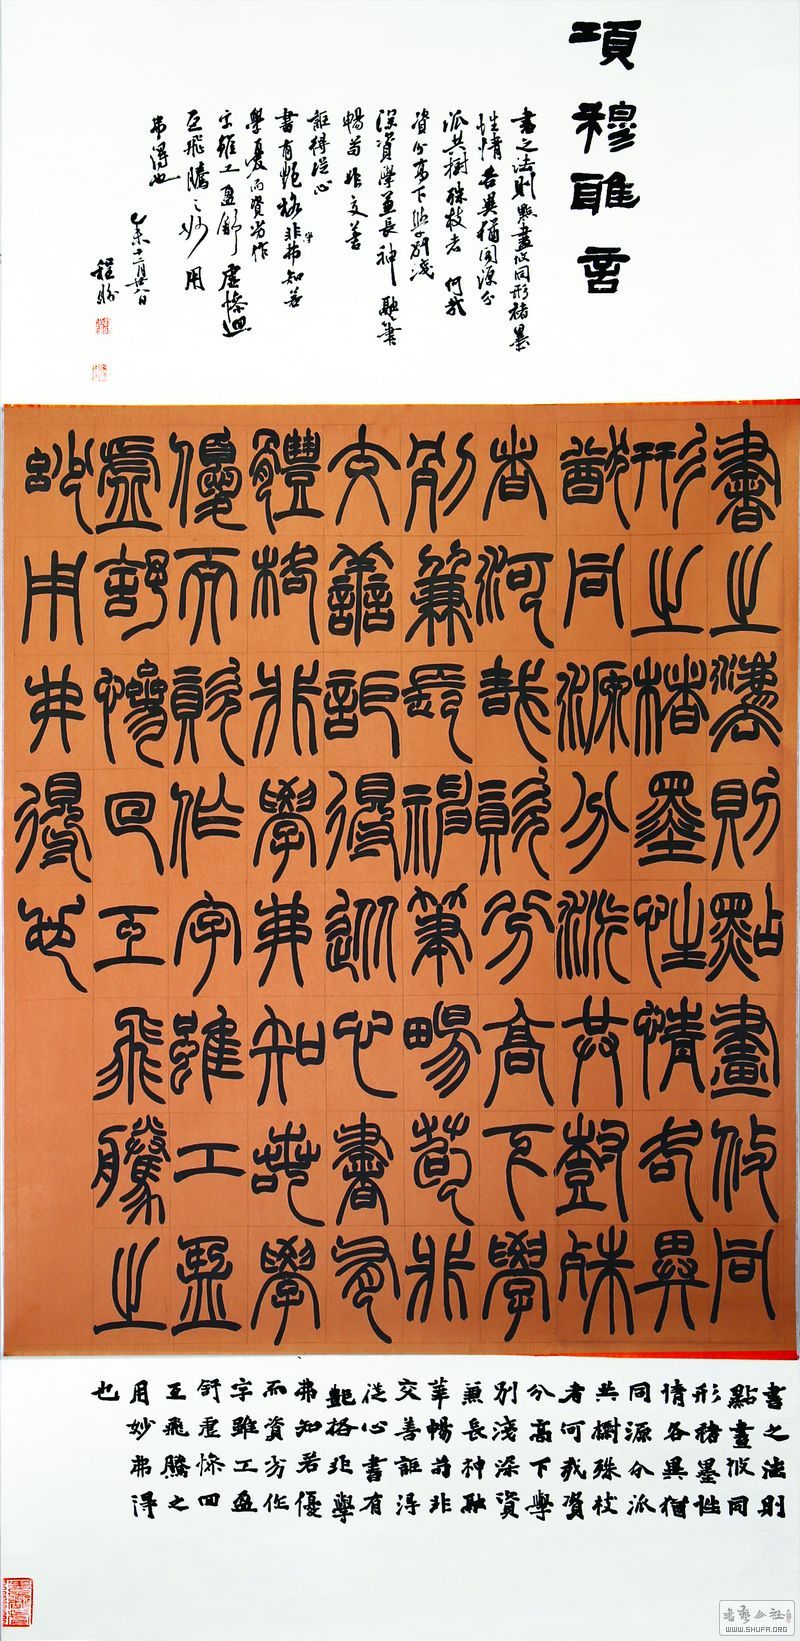 項穆雅言
書之法則點畫攸同形楮墨
性情各異猶同源分
派共樹殊枝者何哉
資分高下學別淺
深資學兼長神融筆
暢苟非交善
詎得從心
書有體格非學弗知若
學優而資劣作
字雖工盈舒虛慘迴
互飛騰之妙用
弗得也
乙未十二月廿八日
程
書之法則點畫攸同
形之楮墨性情各異
猶同源分派共樹殊
者何哉資分高下學
別兼長神筆暢苟非
交善詎得從心書有
體格非學弗知若學
優而資作字雖工盈
虛舒慘回互飛騰之
妙用弗得也
書之法則
點畫攸同
形楮墨性
情各異猶
同源分派
共樹殊枝
者何哉資
分高下學
別淺深資
兼長神融
筆暢苟非
交善詎得
從心書有
體格非學
弗知若優
而資劣作
字雖工盈
舒虛慘回
互飛騰之
用妙弗得
也
WWW.SHUFA.ORG